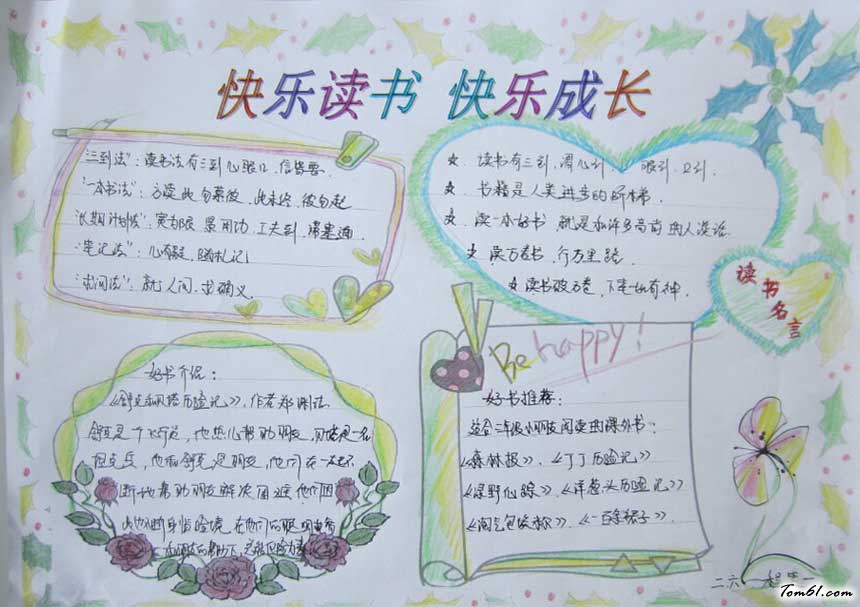 快乐读书 快乐成长
"三到法"：读书法有三到心眼口，信皆要.
"一本书法"：方读此 勿慕彼 此未终 彼勿起
"长期计划法"：宽为限 紧用功，工夫到，滞塞通
"笔记法"：心有疑，随札记
"求问法"：就人问，求确义.
读书有三到，谓心到 眼到，口到.
书籍是人类进步的阶梯.
读一本好书 就是和许多高尚的人谈话.
读万卷书，行万里路
读书破万卷，下笔如有神.
读书
名言
Be happy!
好书介绍：
《舒克和贝塔历险记》，作者郑渊洁
舒克是个飞行员，他想帮助朋友，贝塔是一名
坦克兵，他和舒克是朋友，他们在一起不
断地帮助朋友解决困难，他们
好书推荐：
适合二年级小朋友阅读的课外书：
《森林报》、《丁丁历险记》
《绿野仙踪》、《洋葱头历险记》
《淘气包埃米尔》、《一百条裙子》
二六
Tom61.com